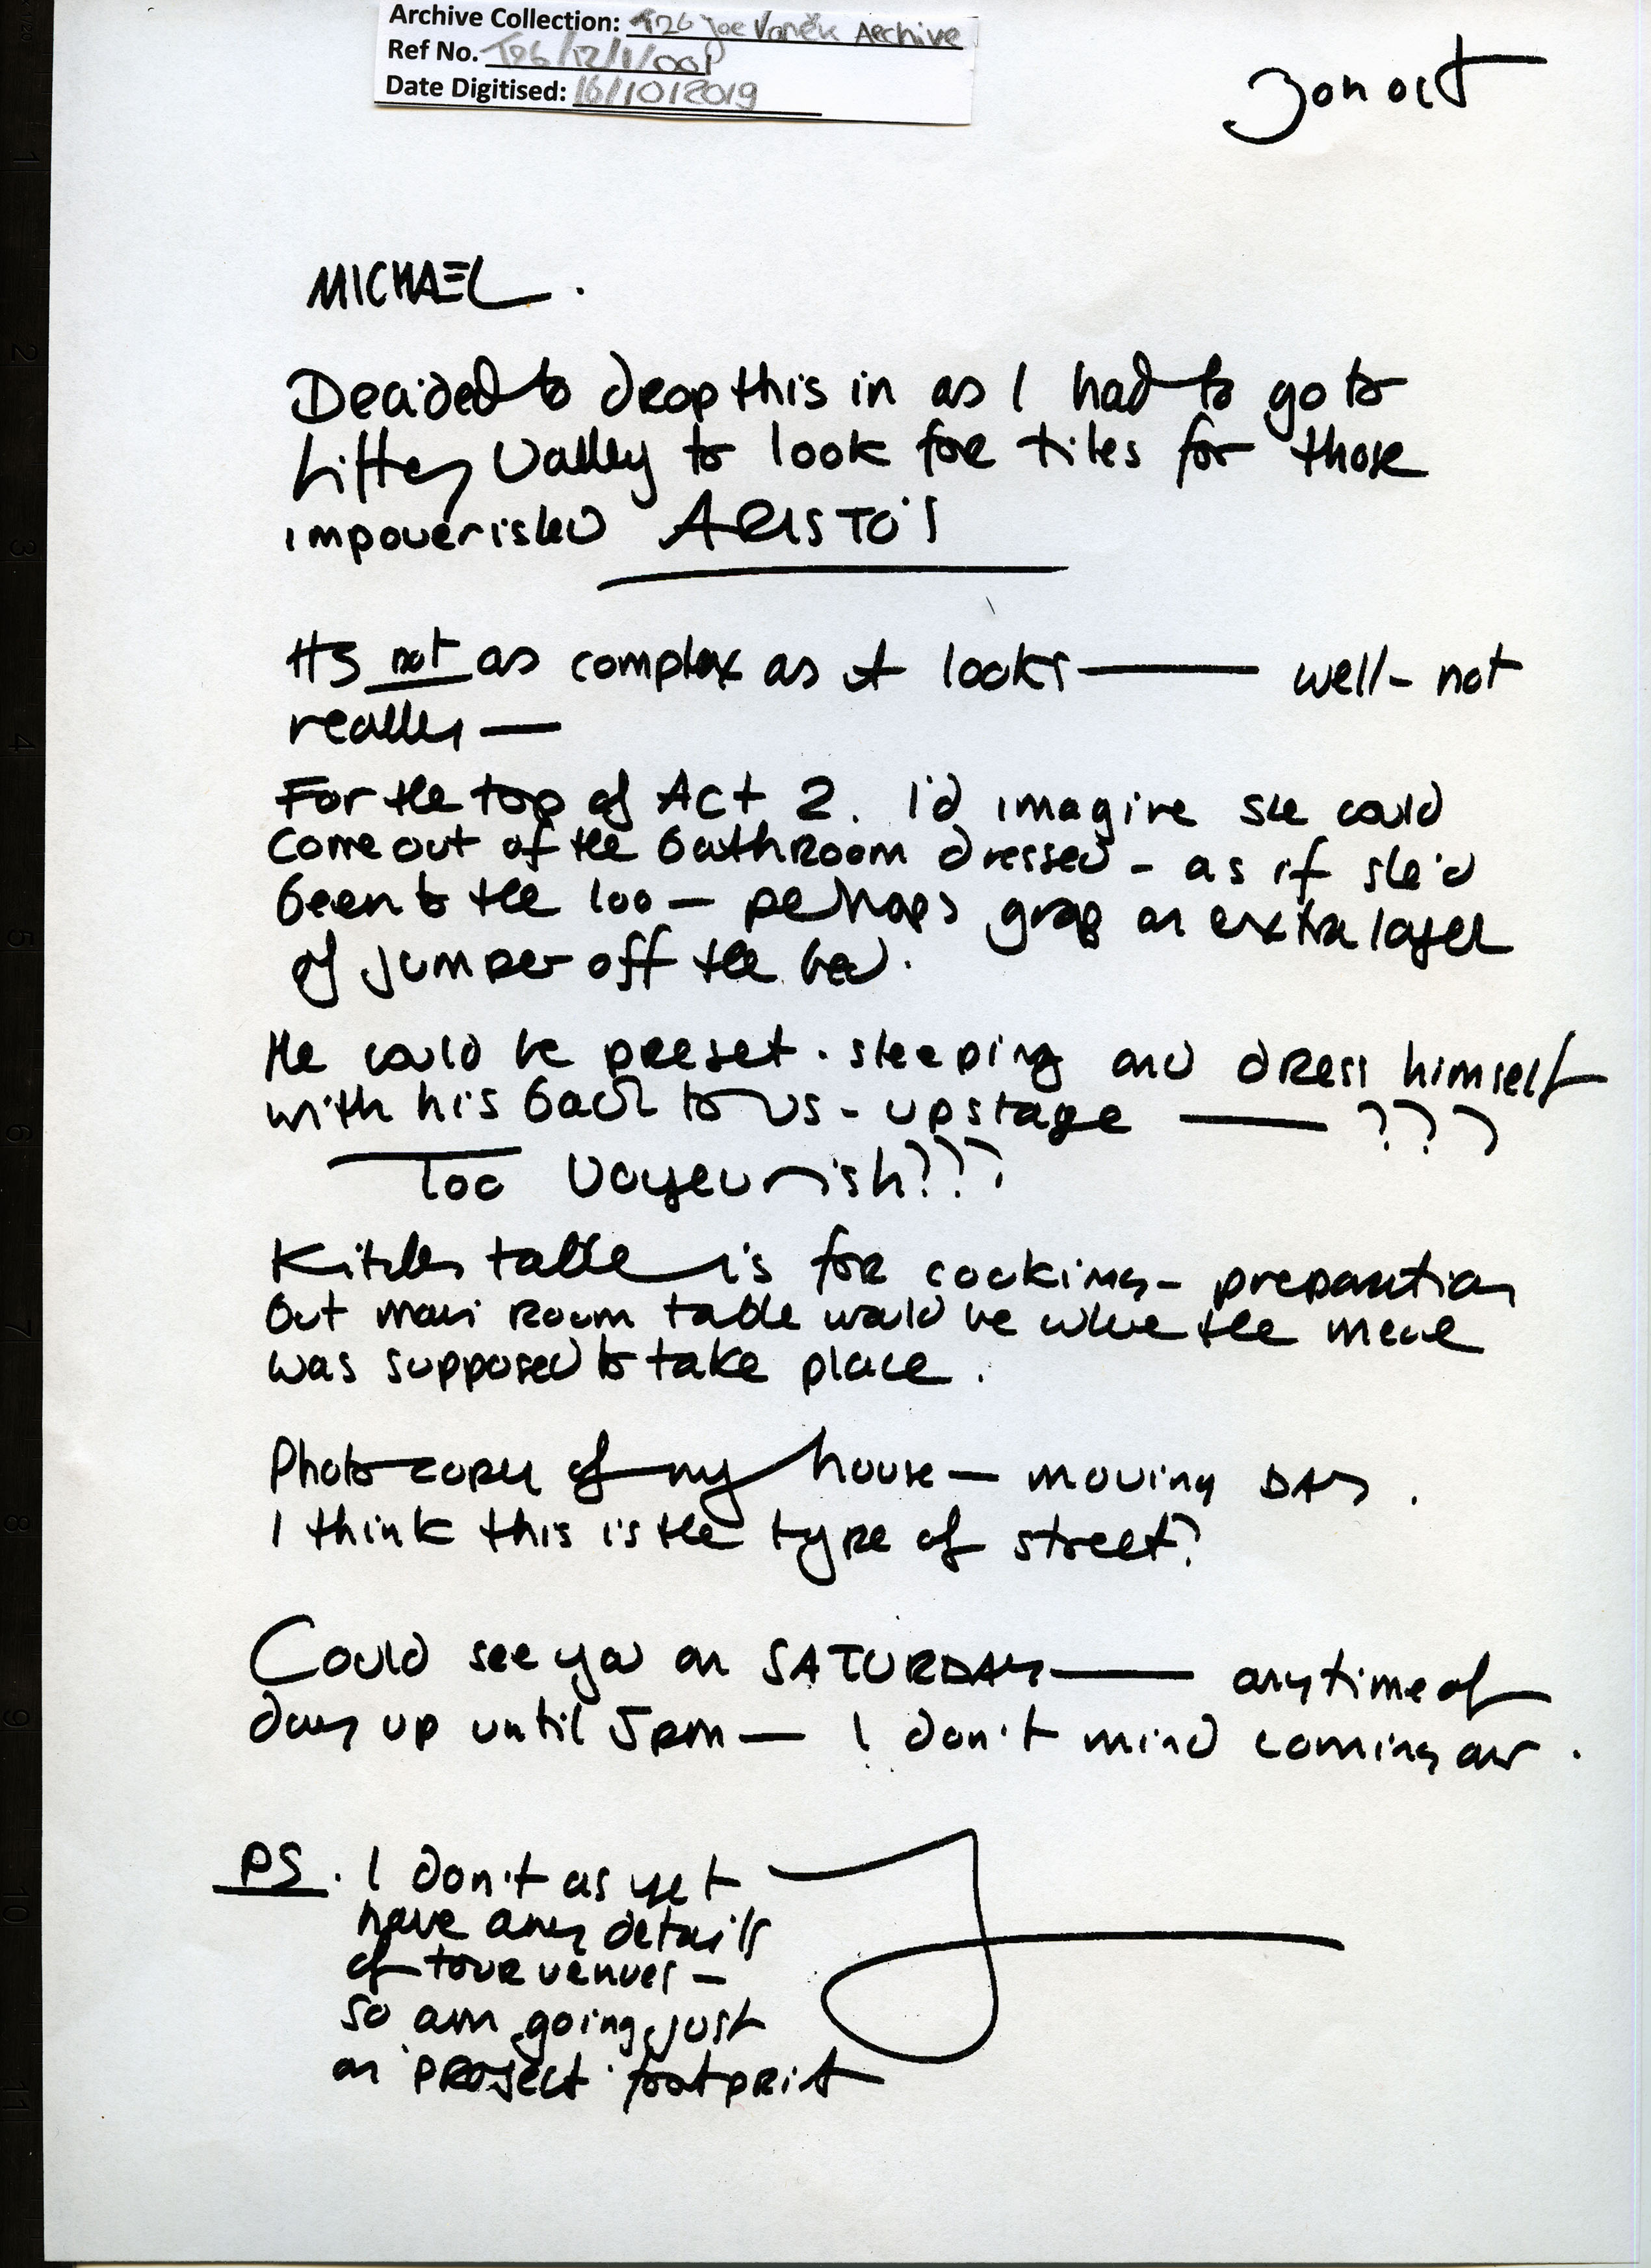 Archive Collection: T26 Joe Vaněk Archive
Ref No. T26/12/1/001
Date Digitised: 16/10/2019
oct
MICHAEL.
Decided to drop this in as I had to go to
Liffey Valley to look for tiles for those
impoverished ARISTO'S
It's not as complex as it looks — well - not
really —
For the top of Act 2. I'd imagine she could
come out of the bathroom dressed - as if she'd
been to the loo — perhaps grab an extra layer
of jumper off the bed.
He could be preset. sleeping and dress himself
with his back to us - upstage — ???
Too Voyeurish???
Kitchen table is for cooking - preparation
but main room table would be where the meal
was supposed to take place.
Photo copy of my house — moving DAY.
I think this is the type of street?
Could see you on SATURDAY — anytime of
day up until 5pm — I don't mind coming over.
PS. I don't as yet
have any details
of tour venues —
so am going just
on 'PROJECT' footprint
J